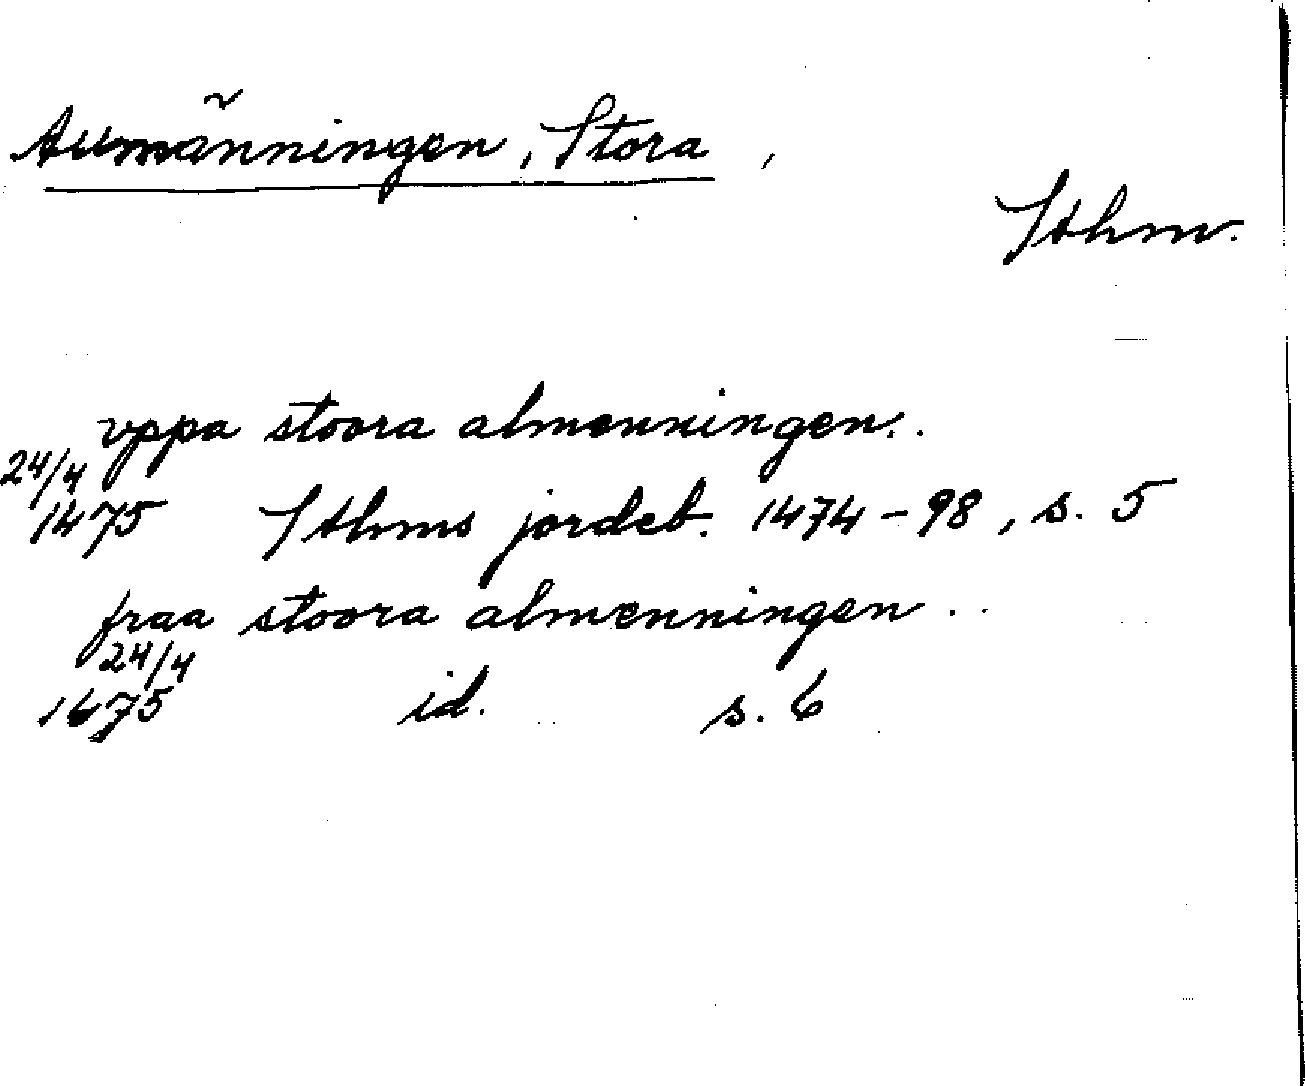 Allmänningen, Stora,
Sthm.
vppa stoora almenningen..
24/4
1475 Sthms jordeb. 1474-98, s. 5
fraa stoora almenningen..
24/4
1475 id. s. 6